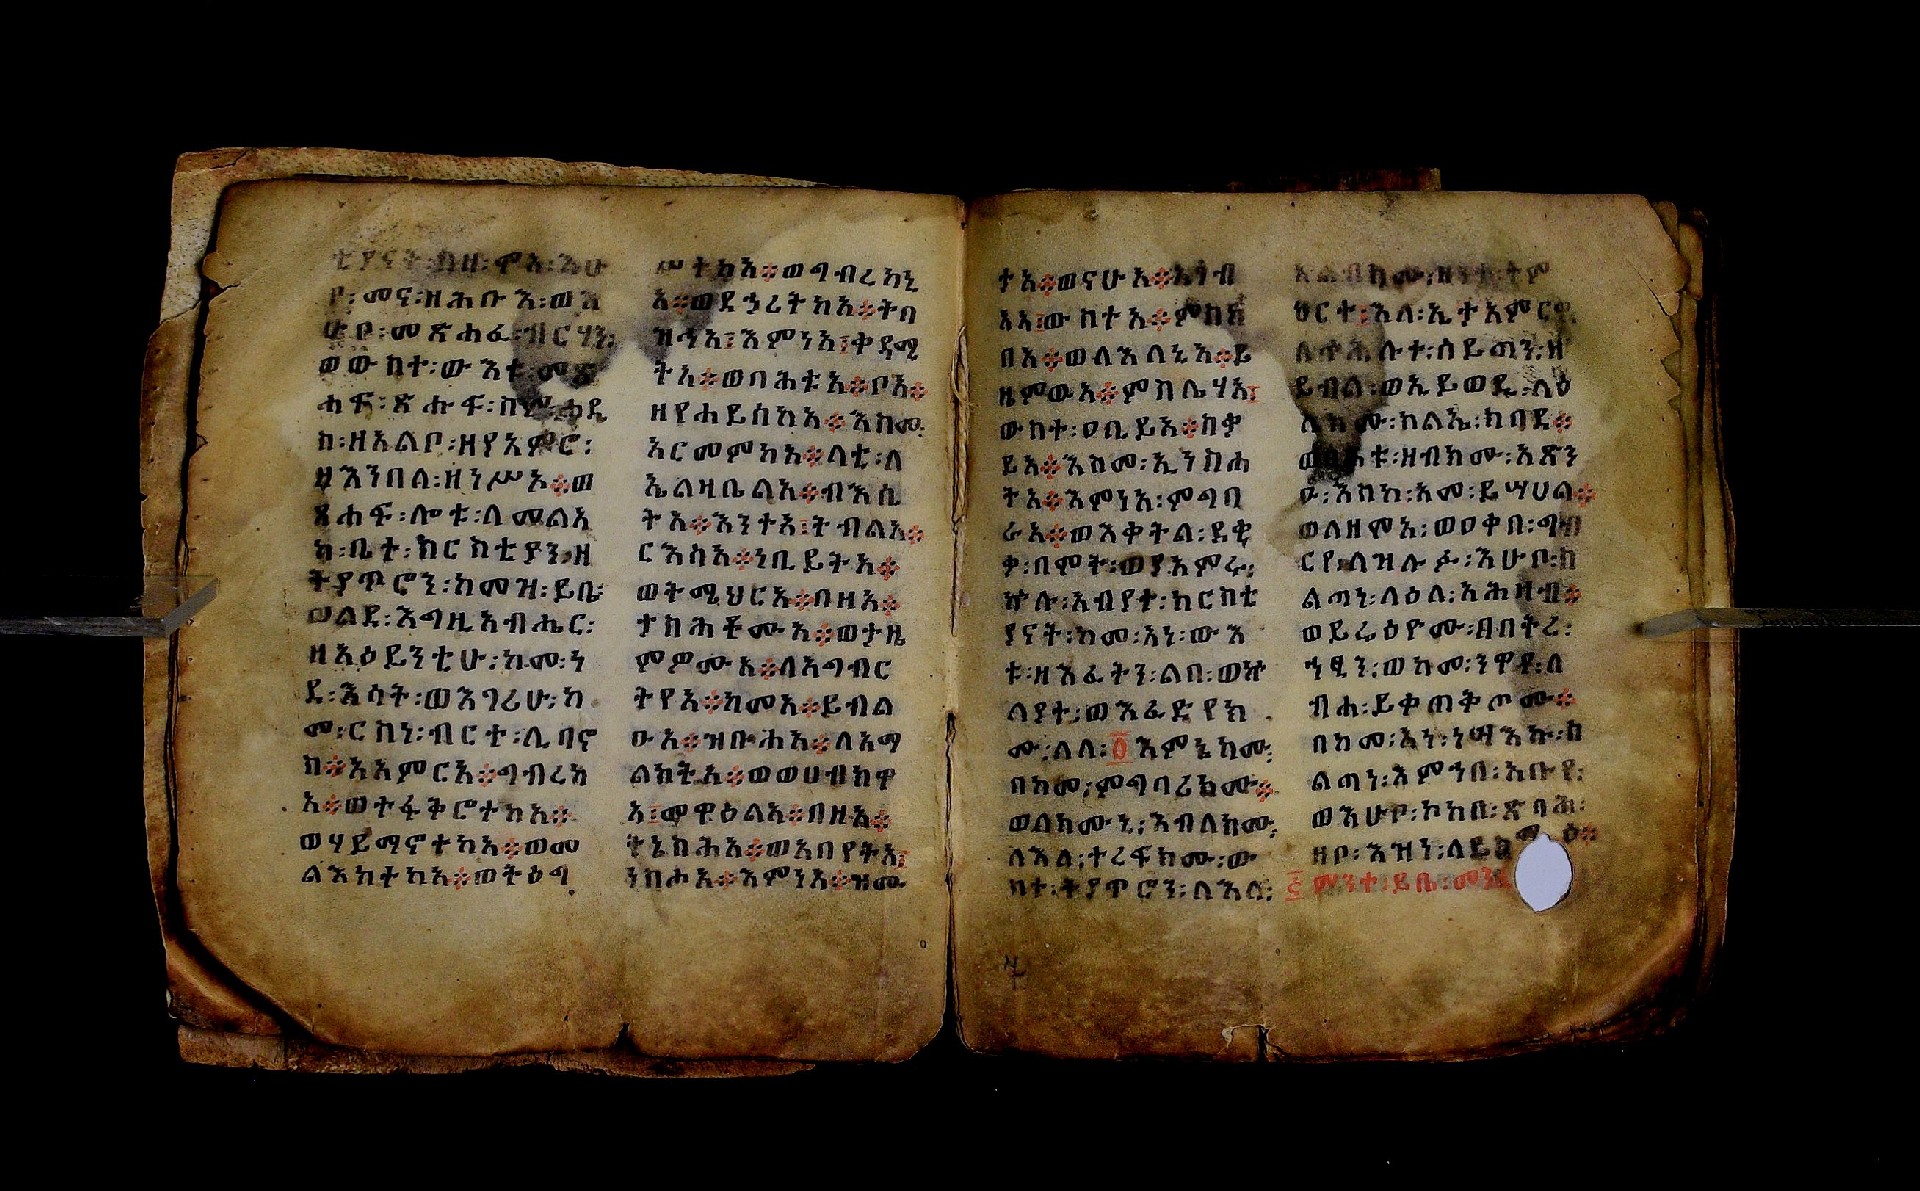 ቲያናት፡ በዘ፡ ሞአ፡ እሁ
ቦ፡ መና፡ ዘሕቡእ፡ ወእ
ሁቦ፡ መጽሐፈ፡ ብርሃን፡
ወውስተ፡ ውእቱ፡ መጽ
ሐፍ፡ ጽሑፍ፡ ስም፡ ሐዲ
ስ፡ ዘአልቦ፡ ዘየአምሮ፡
ዘእንበለ፡ ዘነሥኦ። ወ
ጸሐፍ፡ ሎቱ፡ ለመልአ
ከ፡ ቤተ፡ ክርስቲያን፡ ዘ
ትያጥሮን፡ ከመዝ፡ ይቤ፡
ወልደ፡ እግዚአብሔር፡
ዘአዕይንቲሁ፡ ከመ፡ ነ
ደ፡ እሳት፡ ወእገሪሁ፡ ከ
መ፡ ርስነ፡ ብርተ፡ ሊባኖ
ስ። አአምርአ። ግብረከ
አ። ወተፋቅሮተከአ።
ወሃይማኖተካአ። ወመ
ልእክትካአ። ወትዕግ
ምትከአ። ወግብረከኒ
አ። ወደኃሪትከአ። ትበ
ዝኅአ፤ እምነአ፤ ቀዳሚ
ትአ። ወባሕቱአ። ቦአ።
ዘየሐይሰከአ። እስመ
አርመምከአ። ላቲ፡ ለ
ኤልዛቤልአ። ብእሲ
ትአ። እንተአ፤ ትብልአ።
ርእስአ። ነቢይትአ።
ወትሚህርአ። በዘአ።
ታስሕቶሙአ። ወታዜ
ምዎሙአ። ለአግብር
ትየአ። ከመአ። ይብል
ዑአ። ዝቡሐአ። ለአማ
ልክትአ። ወወሀብክዋ
አ፤ መዋዕልአ። በዘአ።
ትኔስሕአ። ወአበየትአ፤
ንስሐአ። እምነአ። ዝሙ
ተአ። ወናሁአ።
አአ፤ ውስተአ። ምስከ
በአ። ወለእለኒአ። ይ
ዜምውአ። ምስሌሃአ፤
ውስተ፡ ዐቢይአ። ስቃ
ይአ። እስመ፡ ኢንስሐ
ትአ። እምነአ፡ ምግባ
ራአ። ወእቀትል፡ ደቂ
ቃ፡ በሞት፡ ወያአምሩ፡
ኵሉ፡ አብያተ፡ ክርስቲ
ያናት፡ ከመ፡ አነ፡ ውእ
ቱ፡ ዘእፈትን፡ ልበ፡ ወኵ
ላያተ፡ ወእፈድየክ
ሙ፡ ለለ፡ ፩እምኔክሙ፡
በከመ፡ ምግባሪክሙ።
ወለክሙኒ፡ እብለክሙ፡
ለእለ፡ ተረፍክሙ፡ ው
ስተ፡ ትያጥሮን፡ ለእለ፡
አልብክሙ፡ ዘንተ፡ ትም
ህርተ፡ እለ፡ ኢተአምርዎ
ለጥሕሉተ፡ ሰይጣን፡ ዘ
ይብል፡ ወኢይወዲ፡ ላዕ
ሌክሙ፡ ክልኤ፡ ክበደ።
ወባሕቱ፡ ዘብክሙ፡ አጽን
ዑ፡ እስከ፡ አመ፡ ይሣሀል።
ወለዘሞአ፡ ወዐቀበ፡ ግብ
ርየ፡ ለዝሉፉ፡ እሁቦ፡ ስ
ልጣነ፡ ላዕለ፡ አሕዛብ።
ወይሬዕዮሙ፡ በበትረ፡
ኀፂን፡ ወከመ፡ ንዋየ፡ ለ
ብሐ፡ ይቀጠቅጦሙ።
በከመ፡ አነ፡ ነሣእኩ፡ ስ
ልጣነ፡ እምኀበ፡ አቡየ፡
ወእሁቦ፡ ኮከበ፡ ጽባሕ፡
ዘቦ፡ እዝን፡ ለይስማዕ።